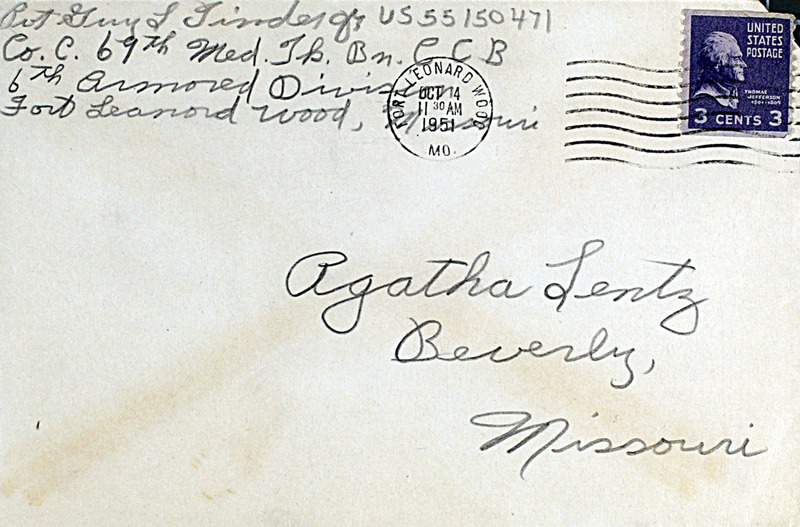 Pvt Guy L Tinder Jr US 55150471
Co. C. 69th Med. Tk. Bn. C C B
6th Armored Division
Fort Leanord Wood, Missouri
FORT LEONARD WOOD
OCT 14
11 30 AM
1951
MO.
UNITED
STATES
POSTAGE
THOMAS
JEFFERSON
1801-1809
3 CENTS 3
Agatha Lentz
Beverly,
Missouri